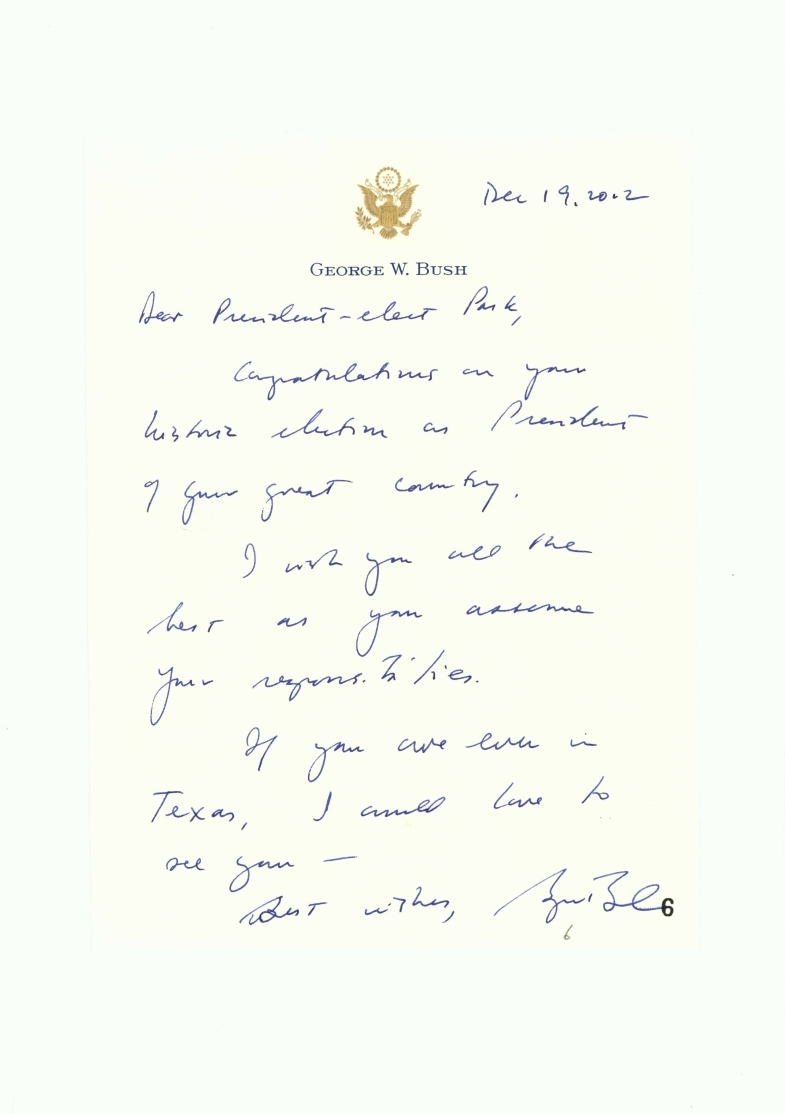 Dec 19, 2012
GEORGE W. BUSH
Dear President-elect Park,
Congratulations on your
historic election as President
of your great country.
I wish you all the
best as you assume
your responsibilities.
If you are ever in
Texas, I would love to
see you —
Best wishes, George Bush
6
6